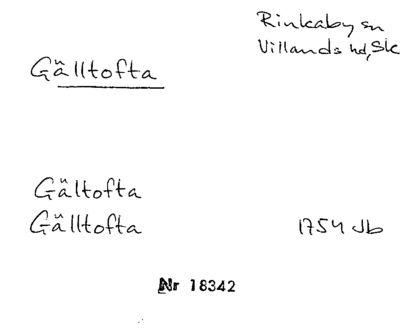 Rinkaby sn
Villands hd, Sk
Gälltofta
Gältofta
Gälltofta 1754 Jb
Nr 18342